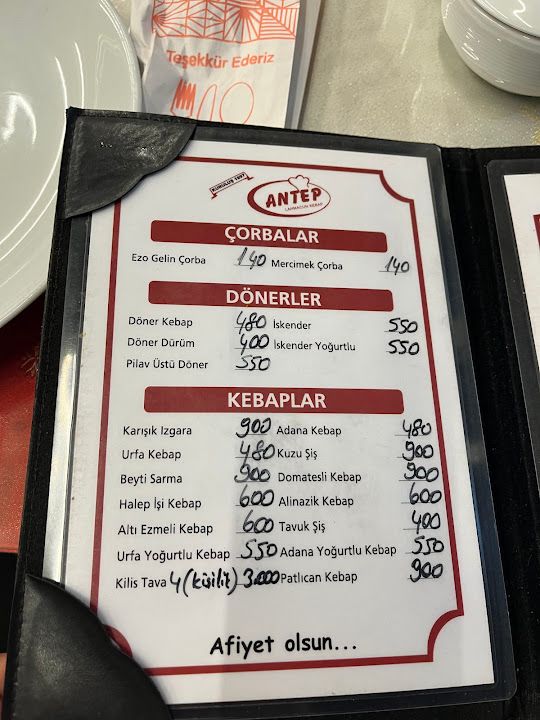 Teşekkür Ederiz
KURULUŞ 1997
ANTEP
LAHMACUN KEBAP
ÇORBALAR
Ezo Gelin Çorba 140 Mercimek Çorba 140
DÖNERLER
Döner Kebap 480 İskender 550
Döner Dürüm 400 İskender Yoğurtlu 550
Pilav Üstü Döner 550
KEBAPLAR
Karışık Izgara 900 Adana Kebap 480
Urfa Kebap 480 Kuzu Şiş 900
Beyti Sarma 900 Domatesli Kebap 900
Halep İşi Kebap 600 Alinazik Kebap 600
Altı Ezmeli Kebap 600 Tavuk Şiş 400
Urfa Yoğurtlu Kebap 550 Adana Yoğurtlu Kebap 550
Kilis Tava 4 (kişilik) 3.000 Patlıcan Kebap 900
Afiyet olsun...